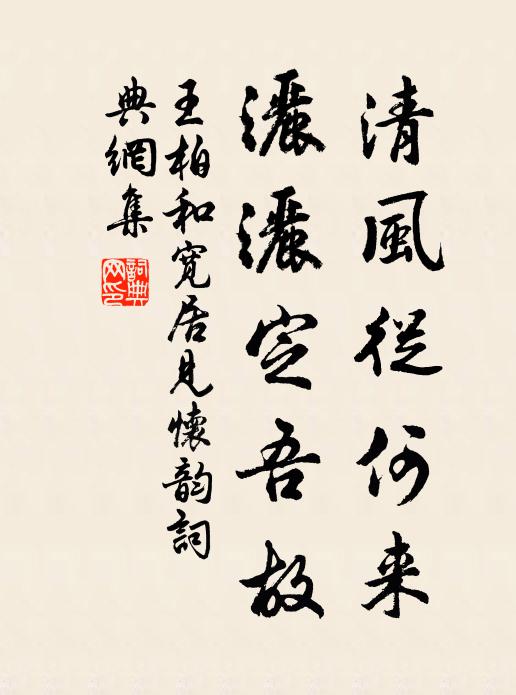 清風從何来
灑灑定吾故
王柏和寬居見懷韵詞
典網集
詞典
网印